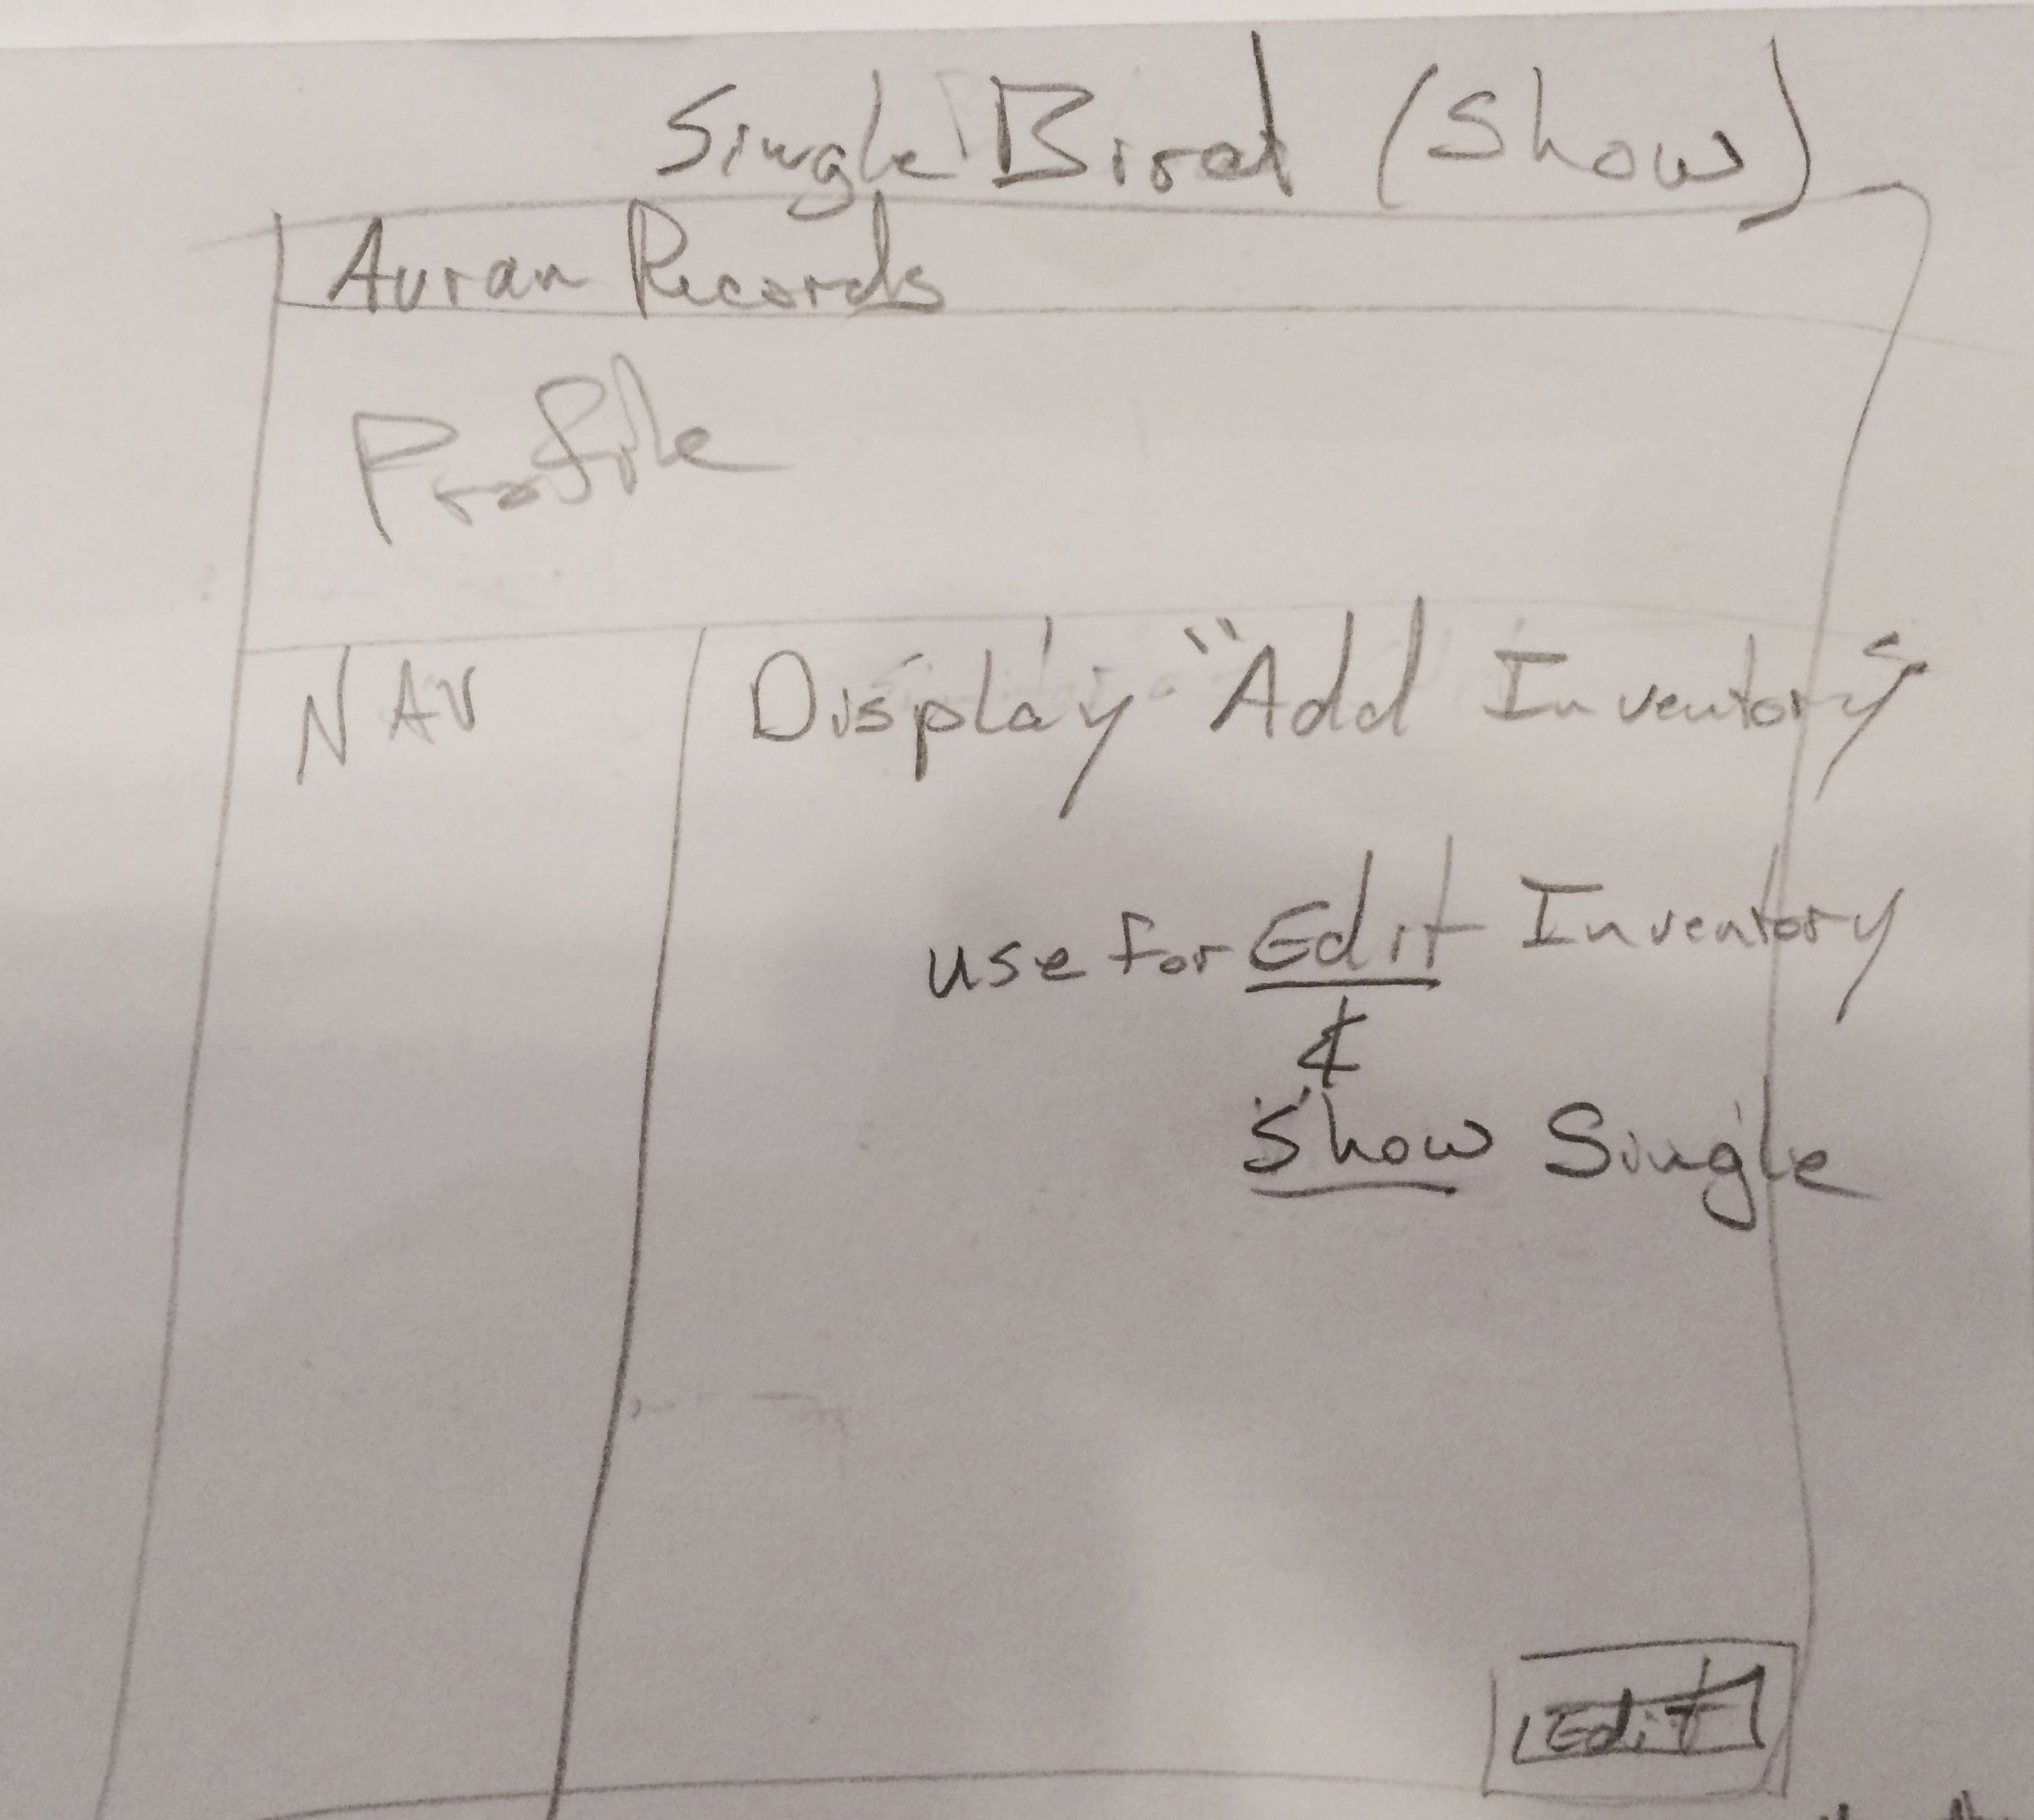 Single Bird (Show)
Avian Records
Profile
NAV
Display "Add Inventory"
use for Edit Inventory
&
Show Single
Edit